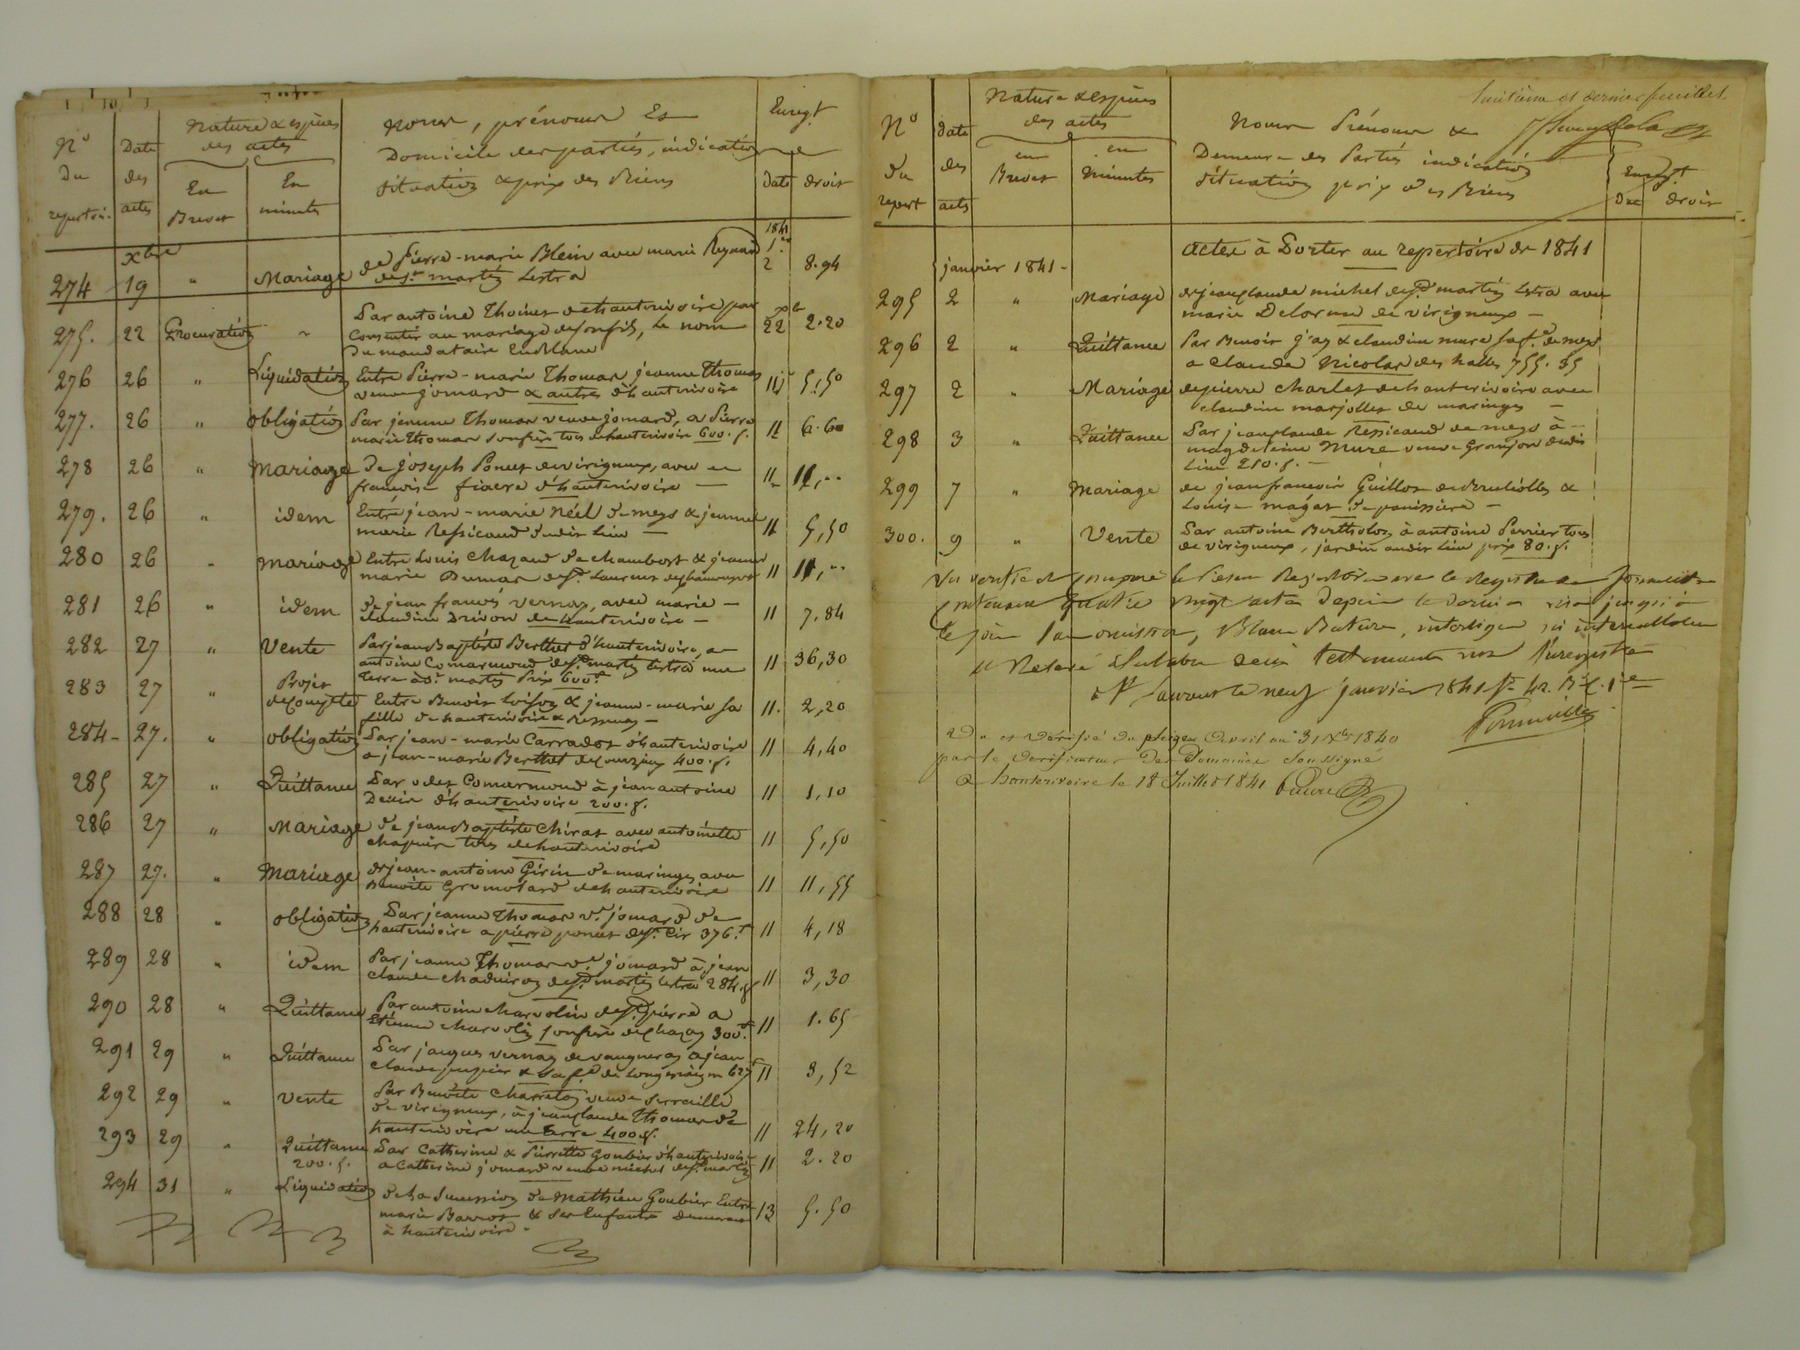 N° du repertoire
Date des actes
Nature & espèces des actes
En Brevet
En minutes
Noms, prénoms Et
Domicile des parties, indication
situation & prix des Biens
Enregt
Date
droit
xbre
1841
274 19 " Mariage de Pierre-marie Blein avec marie Reynard
de St martin Lestra
2 8.94
275. 22 Procuration " Par antoine Thoinet de hauterivoire par
Consentir au mariage de son fils, le nom
Du mandataire En Blanc
22 2.20
276 26 " Liquidation Entre Pierre-marie Thomas jeanne Thomas
veuve jomard & autres d'hauterivoire
11 5,50
277. 26 " obligation Par jeanne Thomas veuve jomard, a Pierre
marie Thomas son frère tous de hauterivoire 600.f.
11 6.60
278 26 " Mariage De joseph Poncet de virigneux, avec
françoise fiacre d'hauterivoire —
11 11,"
279. 26 " idem Entre jean-marie Néel de meys & jeanne
marie Ressicaud dudit lieu —
11 5,50
280 26 " mariage Entre Louis Chazaud de chambost & jeanne
marie Dumas de St Laurent de chamousset
11 11,"
281 26 " idem de jean françois vernay, avec marie —
claudine Drivon de hauterivoire —
11 7,84
282 27 " Vente Par jean Baptiste Berthet d'hauterivoire, a
antoine Comarmond de St martin lestra une
terre a St martin Prix 600f
11 36,30
283 27 " Projet
de compte Entre Benoit loison & jeanne-marie sa
fille de hauterivoire &
11. 2,20
284- 27. " obligation Par jean-marie Carradot d'hauterivoire
a jean-marie Berthet de 400.f.
11 4,40
285 27 " Quittance Par odet Comarmond à jean antoine
d'hauterivoire 200.f.
11 1,10
286 27 " Mariage de jean Baptiste Chirat avec antoinette
tous de hauterivoire
11 5,50
287 27. " Mariage de jean-antoine Girin de maringes avec
Benoîte Gromolard de hauterivoire
11 11,55
288 28 " obligation Par jeanne Thomas ve jomard de
hauterivoire a pierre poncet de St Cir 376.f
11 4,18
289 28 " idem Par jeanne Thomas ve jomard à jean
claude de St martin lestra 284.f
11 3,30
290 28 " Quittance Par antoine charvolin de St Pierre a
Etienne charvolin son frère de 300f.
11 1.65
291 29 " Quittance Par jacques vernay de vaugneray a jean
claude & sa fe de Longessaigne 627f
11 3,52
292 29 " vente Par Benoîte Charreton veuve
de virigneux, à jean claude Thomas de
hauterivoire une terre 400.f.
11 24,20
293 29 " Quittance
200.f. Par Catherine & Pierrette Goubier d'hauterivoire
a Catherine jomard veuve michel de St martin
11 2.20
294 31 " Liquidation De la Succession De Mathieu Goubier Entre
marie Barrot & ses Enfants demeurant
à hauterivoire.
13 5.50
huitième et dernier feuillet.
N° du repert
date des acts
Nature & espèces des actes
en Brevet
en minutes
Noms Prénoms &
Demeure des Parties indication
situation prix des Biens
Enregt.
Date
droit
actes à Porter au repertoire de 1841
janvier 1841-
295 2 " Mariage de jean claude michel de St martin lestra avec
marie Delorme de virigneux —
296 2 " Quittance Par Benoit & claudine mure sa fe de meys
a claude Nicolas des halles 755.35
297 2 " Mariage de pierre Charles de hauterivoire avec
claudine marjollet de maringes —
298 3 " Quittance Par jean claude Ressicaud de meys à —
magdeleine Mure veuve Granjon dudit
lieu 210.f. —
299 7 " Mariage de jean francois Guillot de Brullioles &
Louise magat de panissière —
300. 9 " Vente Par antoine Bertholon à antoine Perrier tous
de virigneux, jardin audit lieu prix 80.f.
Vu vérifié et comparé le Présent Repertoire avec le Registre de formalité
Contenant quatre vingt actes depuis le dernier visa jusqu'à
ce jour sans omission, Blanc Rature, interligne ni intercallation
St Laurent le neuf janvier 1841 fo 42. Ro C. 1re
Vu et vérifié du premier avril au 31 Xbre 1840
par le Verificateur Des Domaines Soussigné
a hauterivoire le 18 Juillet 1841